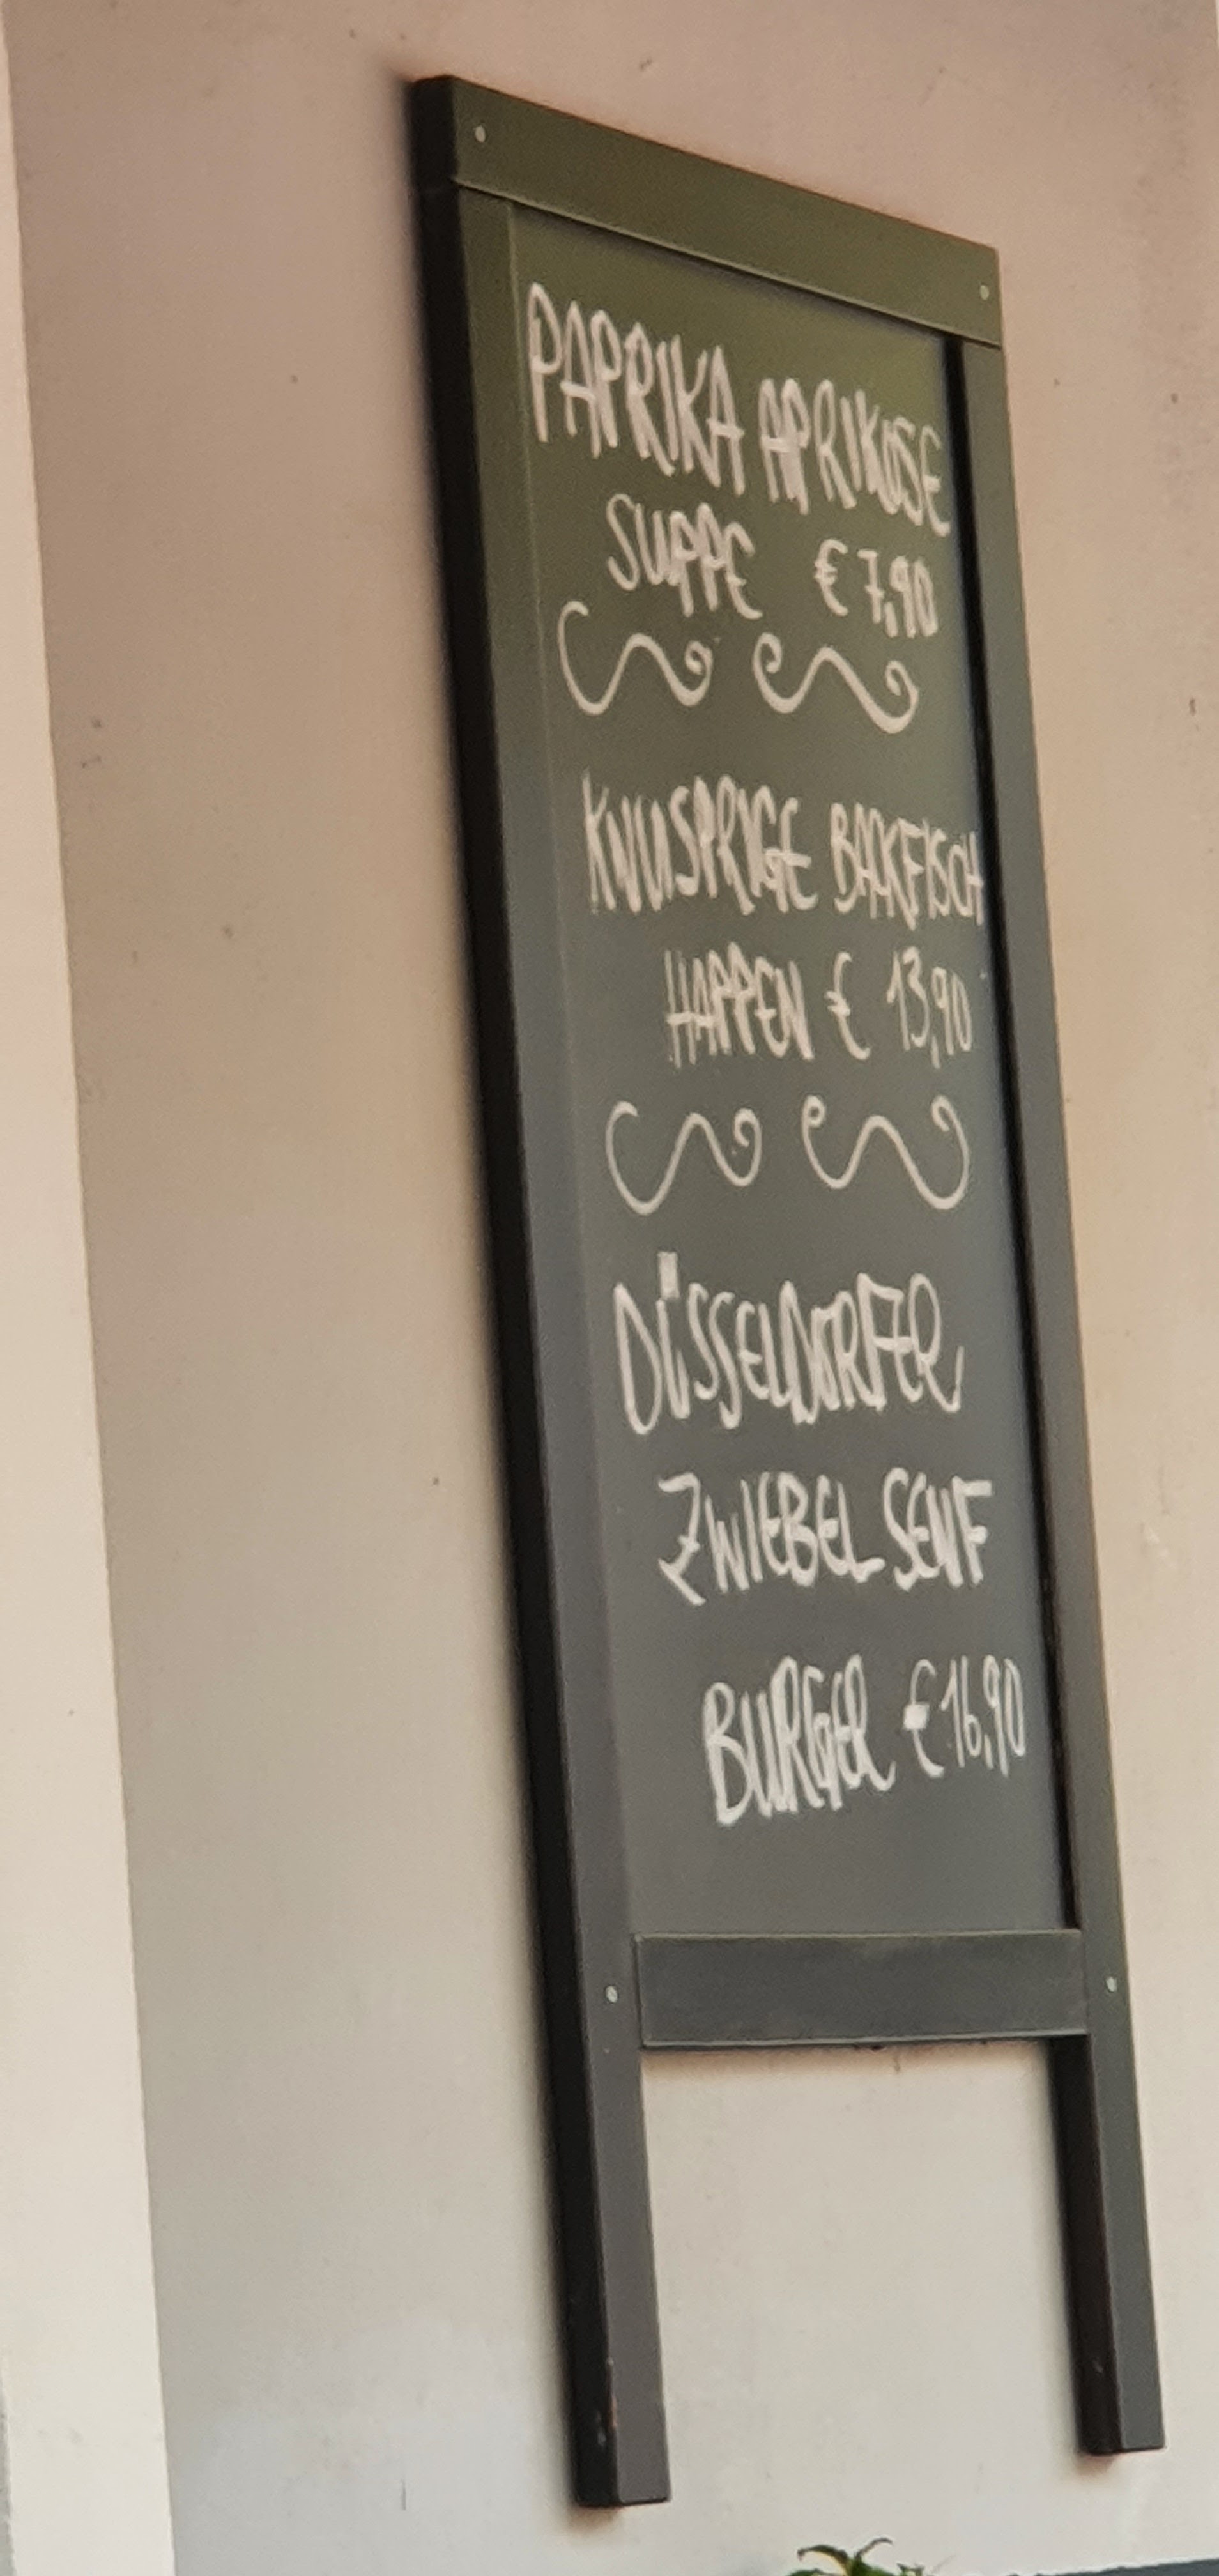 PAPRIKA APRIKOSE
SUPPE € 7,90
KNUSPRIGE BACKFISCH
HAPPEN € 13,90
DÜSSELDORFER
ZWIEBEL SENF
BURGER € 16,90